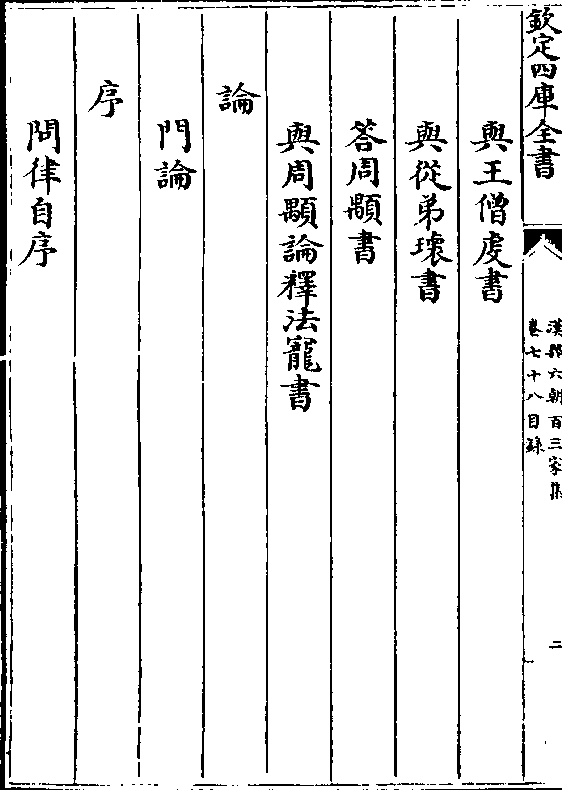 欽定四庫全書
漢魏六朝百三家集
卷七十八目録
二
與王僧虔書
與從弟瓌書
答周顒書
與周顒論釋法寵書
論
門論
序
問律自序